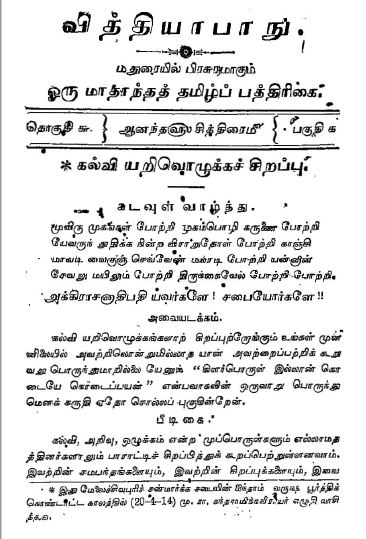 வித்தியாபாநு.
மதுரையில் பிரசுரமாகும்
ஓரு மாதாந்தத் தமிழ்ப் பத்திரிகை.
தொகுதி ௬. ஆனந்தஹ சித்திரைமீ பகுதி ௧
* கல்வி யறிவொழுக்கச் சிறப்பு.
கடவுள் வாழ்த்து.
மூவிரு முகங்கள் போற்றி முகம்பொழி கருணை போற்றி
யேவருந் துதிக்க நின்ற விராறுதோள் போற்றி காஞ்சி
மாவடி வைகுஞ் செவ்வேள் மலரடி போற்றி யன்னான்
சேவலு மயிலும் போற்றி திருக்கைவேல் போற்றி போற்றி.
அக்கிராசனாதிபதி யவர்களே! சபையோர்களே!!
அவையடக்கம்.
கல்வி யறிவொழுக்கங்களாற் சிறப்புற்றோங்கும் உங்கள் முன்
னிலையில் அவற்றிலொன்றுமில்லாத யான் அவற்றைப்பற்றிக் கூறு
வது பொருந்துமாறில்லை யேனும் "கிளர்பொருள் இல்லான் கொ
டையே கொடைப்பயன்" என்பவாகலின் ஒருவாறு பொருந்து
மெனக் கருதி ஏதோ சொல்லப் புகுகின்றேன்.
பீடிகை.
கல்வி, அறிவு, ஒழுக்கம் என்ற முப்பொருள்களும் எல்லாமத
த்தினர்களாலும் பாராட்டிச் சிறப்பித்துக் கூறப்பெற்றுள்ளனவாம்.
இவற்றின் சம்பந்தங்களையும், இவற்றின் சிறப்புக்களையும், இவை
* இது மேலைச்சிவபுரிச் சன்மார்க்க சபையின் வருஷ பூர்த்திக்
கொண்டாட்ட காலத்தில் (20-4-14) மு. கா. கந்தசாமிக்கவிராயர் எழுதி வாசி
த்தது.